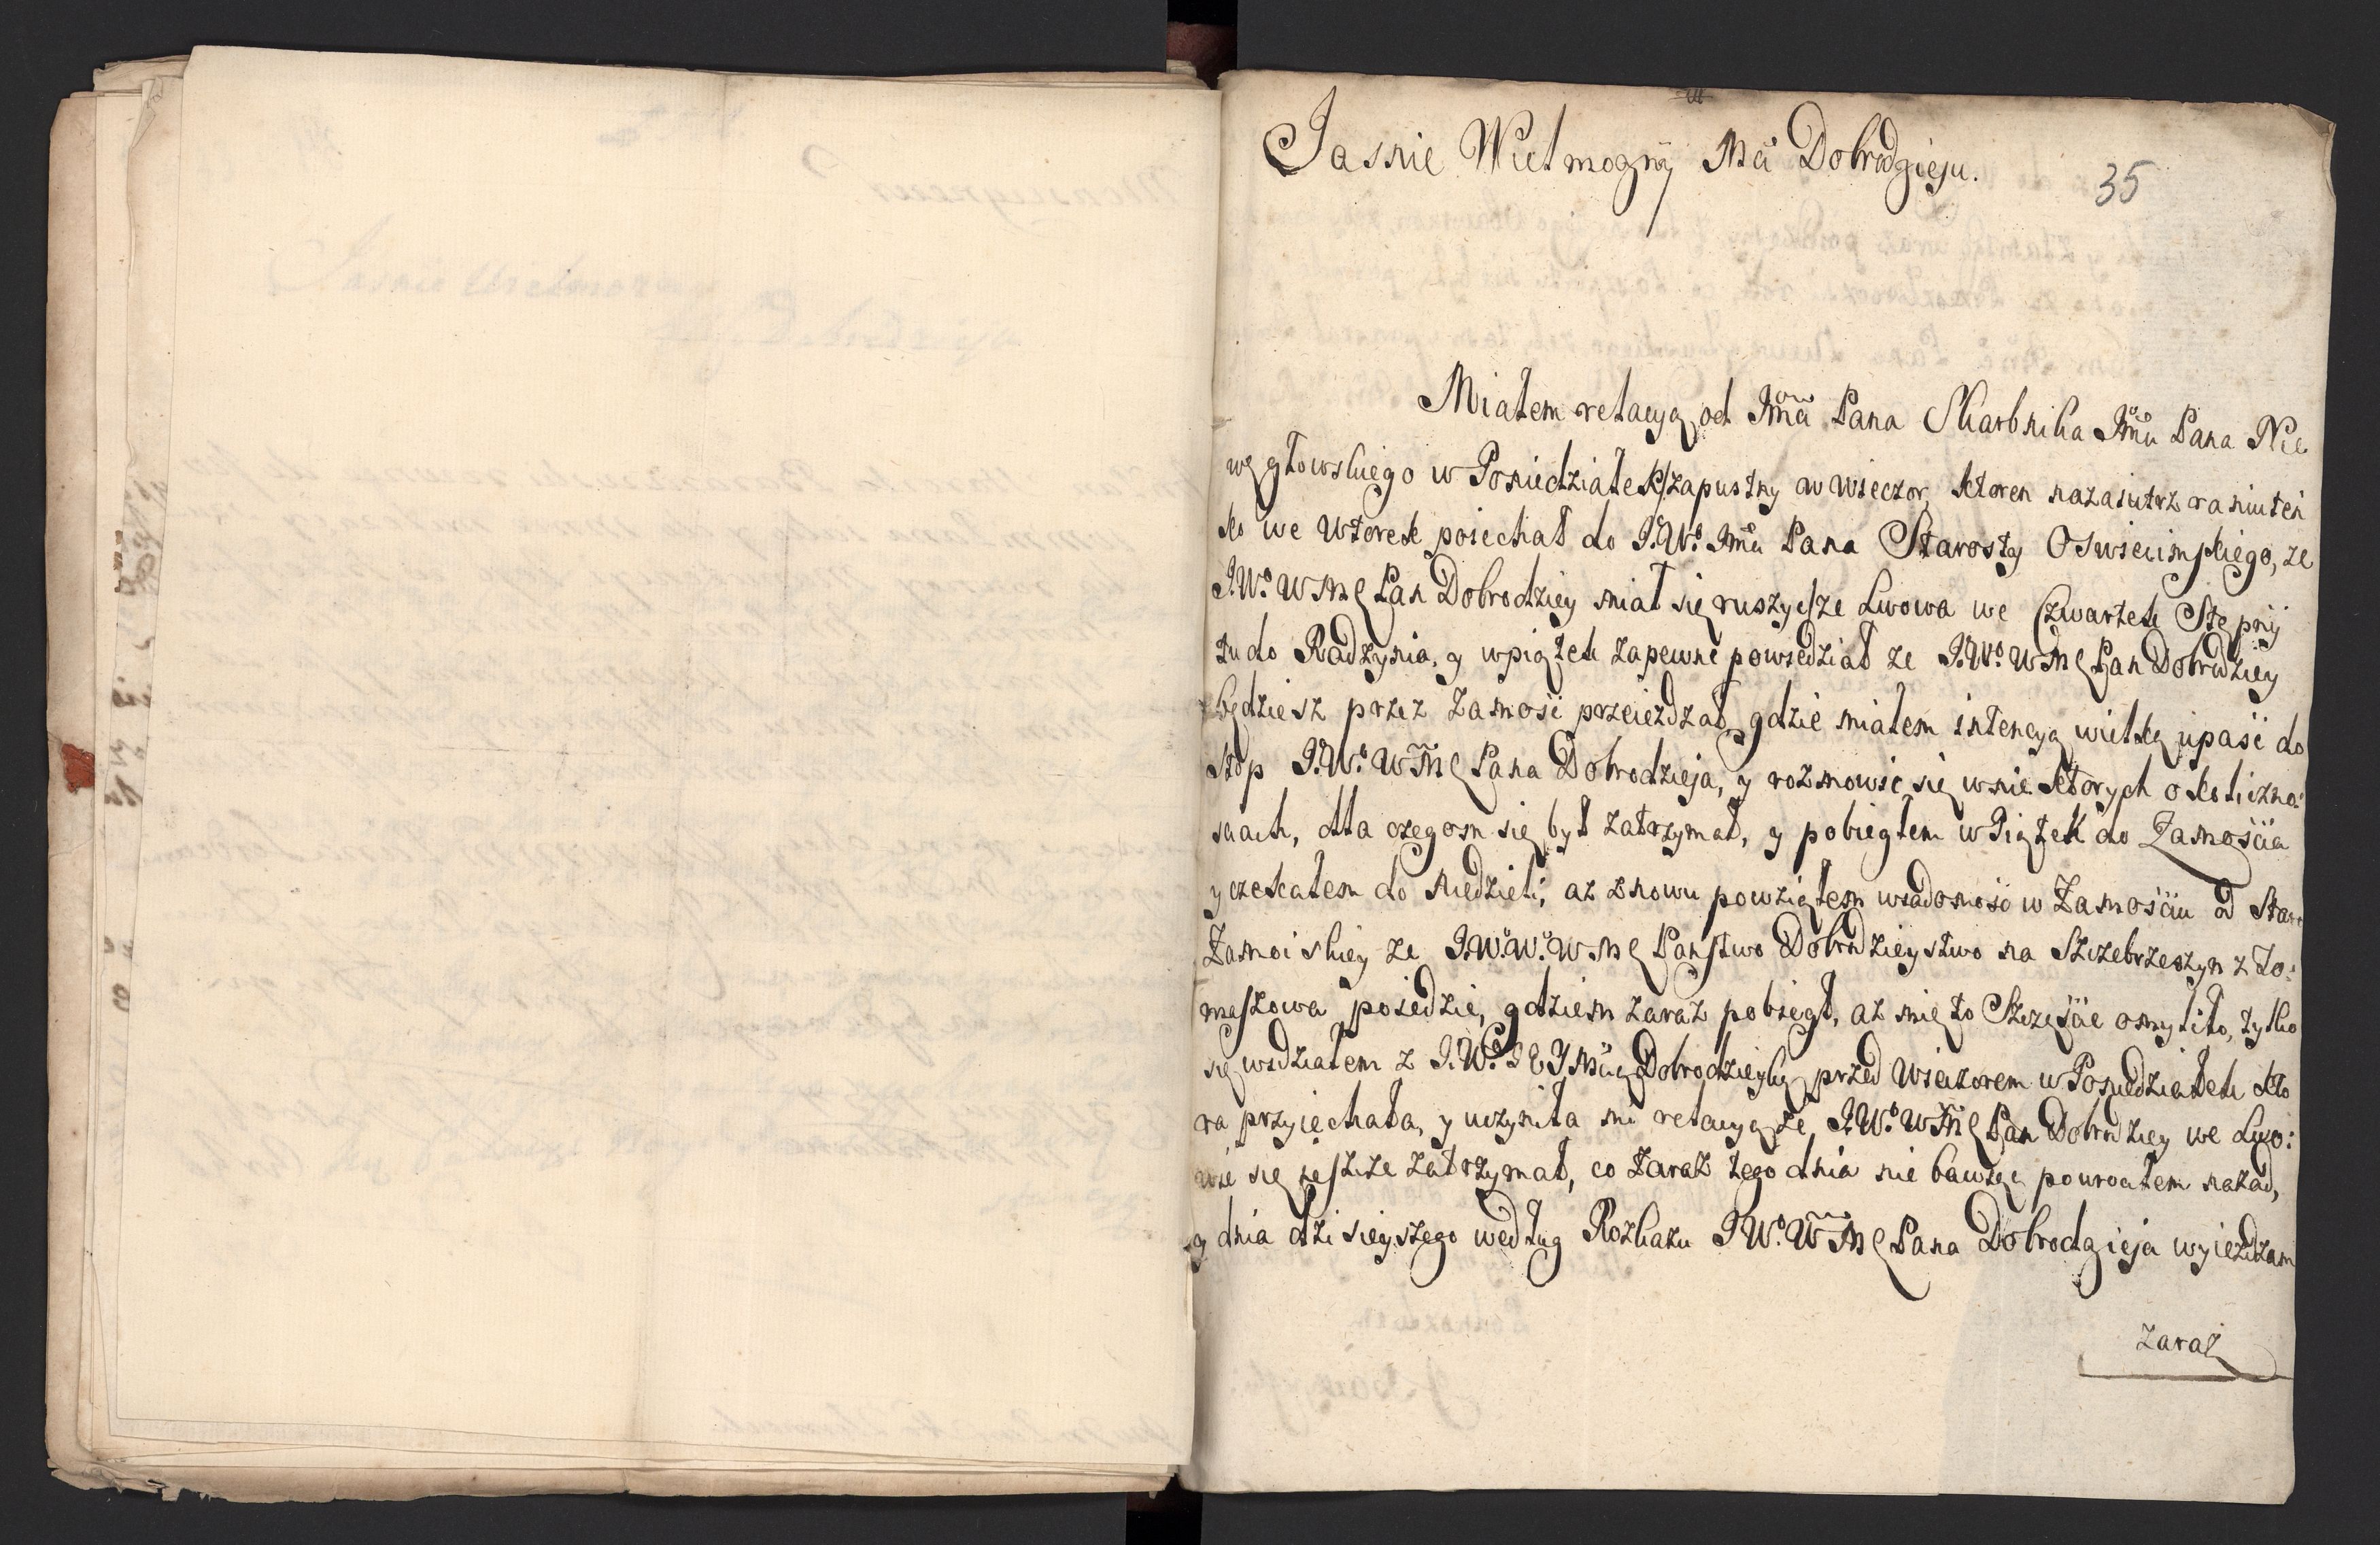 Jasnie Wielmozny Mci Dobrodzieju.
35
Miałem relacyą od Jmci Pana Skarbnika Jmci Pana Nie
węgłowskiego w Poniedziałek zapustny w wieczor, ktoren nazaiutrz raniuteń
ko we Wtorek poiechał do J.W.º Jmci Pana Starosty Oswiecimskiego, ze
J.W.º W M Pan Dobrodziey miał się ruszyc ze Lwowa we Czwartek
tu do Radzynia, y w piątek zapewne powiedział ze J.W.º W M Pan Dobrodziey
będziesz przez Zamość przeieżdzał, gdzie miałem intencyą wielką upaść do
stop J.W.º W M Pana Dobrodzieja, y rozmowić się w nie ktorych okoliczno:
sciach, dla czegom się był zatrzymał, y pobiegłem w Piątek do Zamościa
y czekałem do Niedzieli; az znowu powziąłem wiadomość w Zamościu od Star
Zamoiskiey ze J.W.W. W M Państwo Dobrodzieystwo na Szczebrzeszyn z To:
maszowa poiedzie, gdziem zaraz pobiegł, az mię to Szczęście omyliło, tylko
się widziałem z J.W.º J E Jmcią Dobrodzieyką przed Wieczorem w Poniedziałek kto
ra przyiechała, y uczyniła mi relacyą ze J.W.º W M Pan Dobrodziey we Lwo:
wie się ieszcze zatrzymał, co zaraz tego dnia nie bawiąc powrociłem nazad,
y dnia dzisieyszego według Rozkazu J W.º W M Pana Dobrodzieja wyieżdzam
zaraz